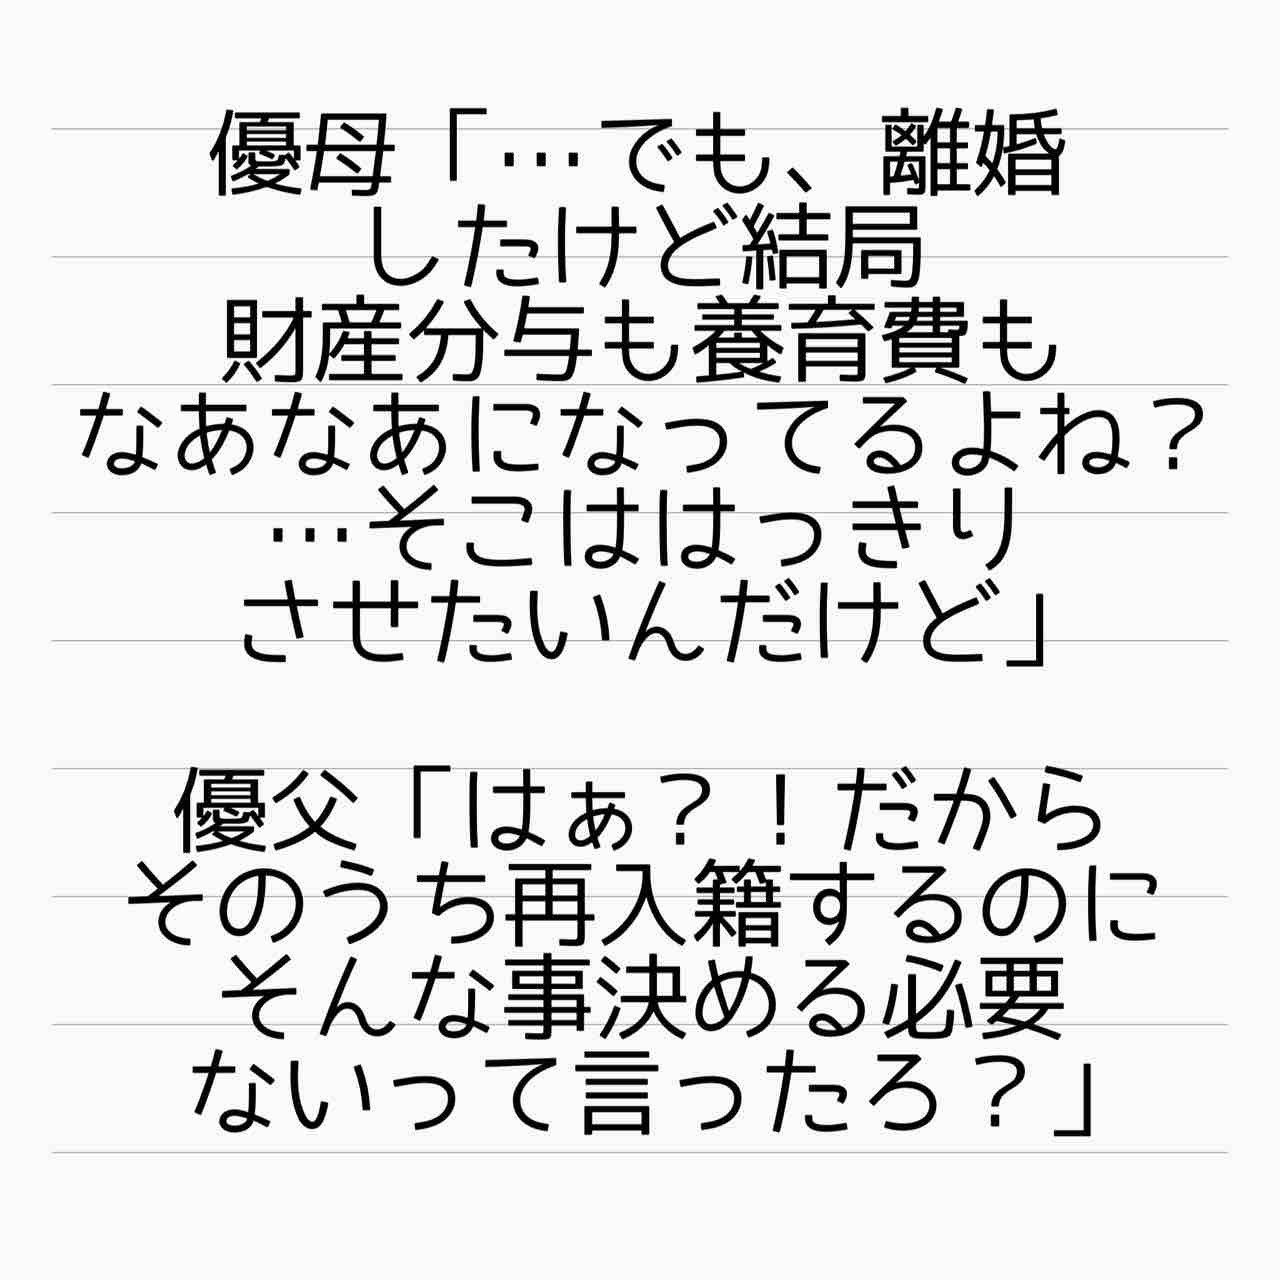 優母「…でも、離婚
したけど結局
財産分与も養育費も
なあなあになってるよね？
…そこははっきり
させたいんだけど」
優父「はぁ？！だから
そのうち再入籍するのに
そんな事決める必要
ないって言ったろ？」